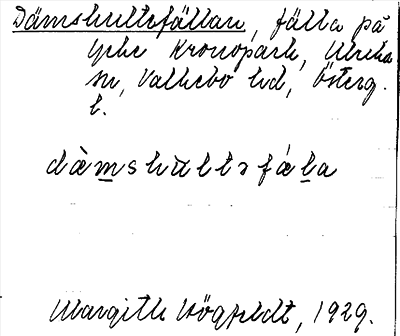 Dämshultsfällan, fälla på
Ycke Kronopark, Ulrika
sn, Valkebo hd, Österg.
l.
dàmshulltsfála
Margith Högfeldt, 1929.